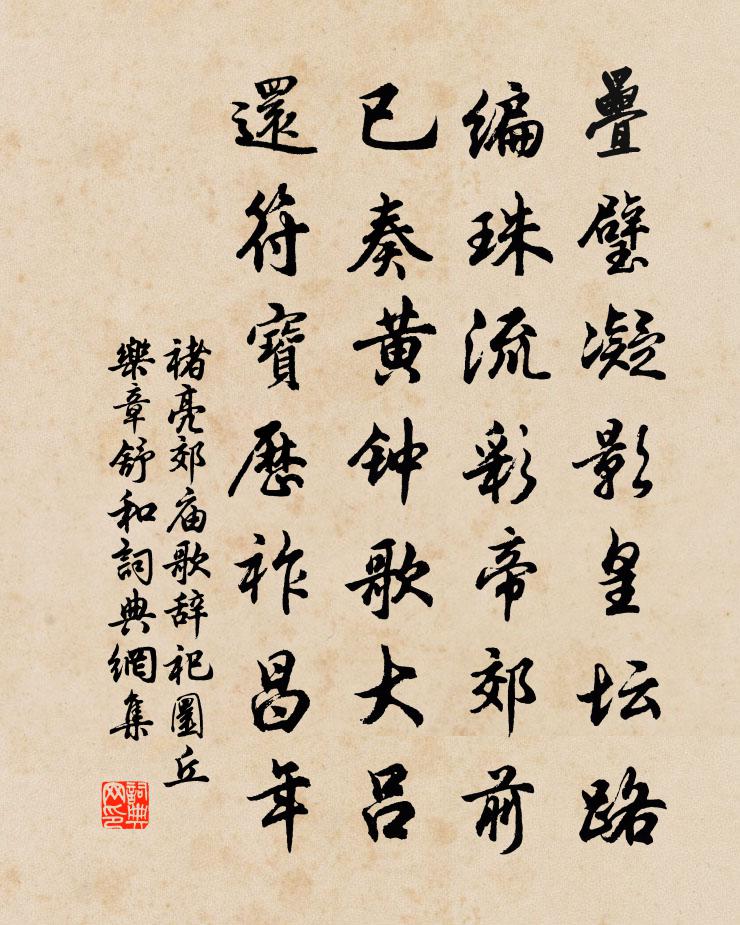 疊璧凝影皇坛路
编珠流彩帝郊前
已奏黄钟歌大吕
還符寶歷祚昌年
褚亮郊庙歌辞祀圜丘
樂章舒和詞典網集
詞典网印